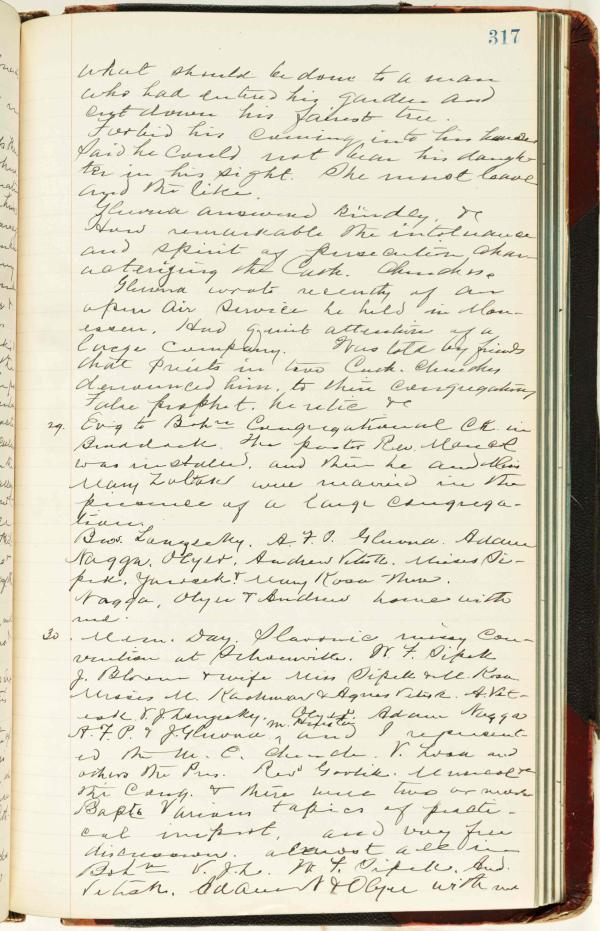 317
what should be done to a man
who had entered his garden and
cut down his fairest tree.
Forbid his coming into his house
Said he could not bear his daugh-
ter in his sight. She must leave
and the like.
Gluona answered kindly, &c
How remarkable the intolerance
and spirit of persecution char-
acterizing the Cath. Churches.
Gluona wrote recently of an
open air service he held in Mon-
essen. Had quiet attention of a
large company. Was told by friends
that Priests in two Cath. Churches
denounced him, to their congregations
False prophet, heretic &c
29. Evig to Bohm Congregational Ch. in
Braddock. The pastor Rev.
was installed, and then he and Miss
Mary were married in the
presence of a large congrega-
tion.
Bros. A. F. P. Gluona. Adam
Nagga, Olyer, Andrew Misses Si-
pek, & Mary Kosa there.
Nagga, Olyer & Andrew home with
me.
30. Mem. Day. Slavonic missy Con-
vention at Schoenville. W. F. Sipek
J. & wife Miss Sipek & M. Kosa
Misses M. & Agnes A.
& J. Olyer, Adam Nagga
A. F. P. & J Gluona, and I represent-
ed the M. E. Church. V. and
others the Pres. Revs &c
the Cong. & there were two or more
Bapts Various topics of practi-
cal import, and very free
discussion. almost all in
Bohm V. Jh. W. F. Sipek. And.
Adam N & Olyer with me